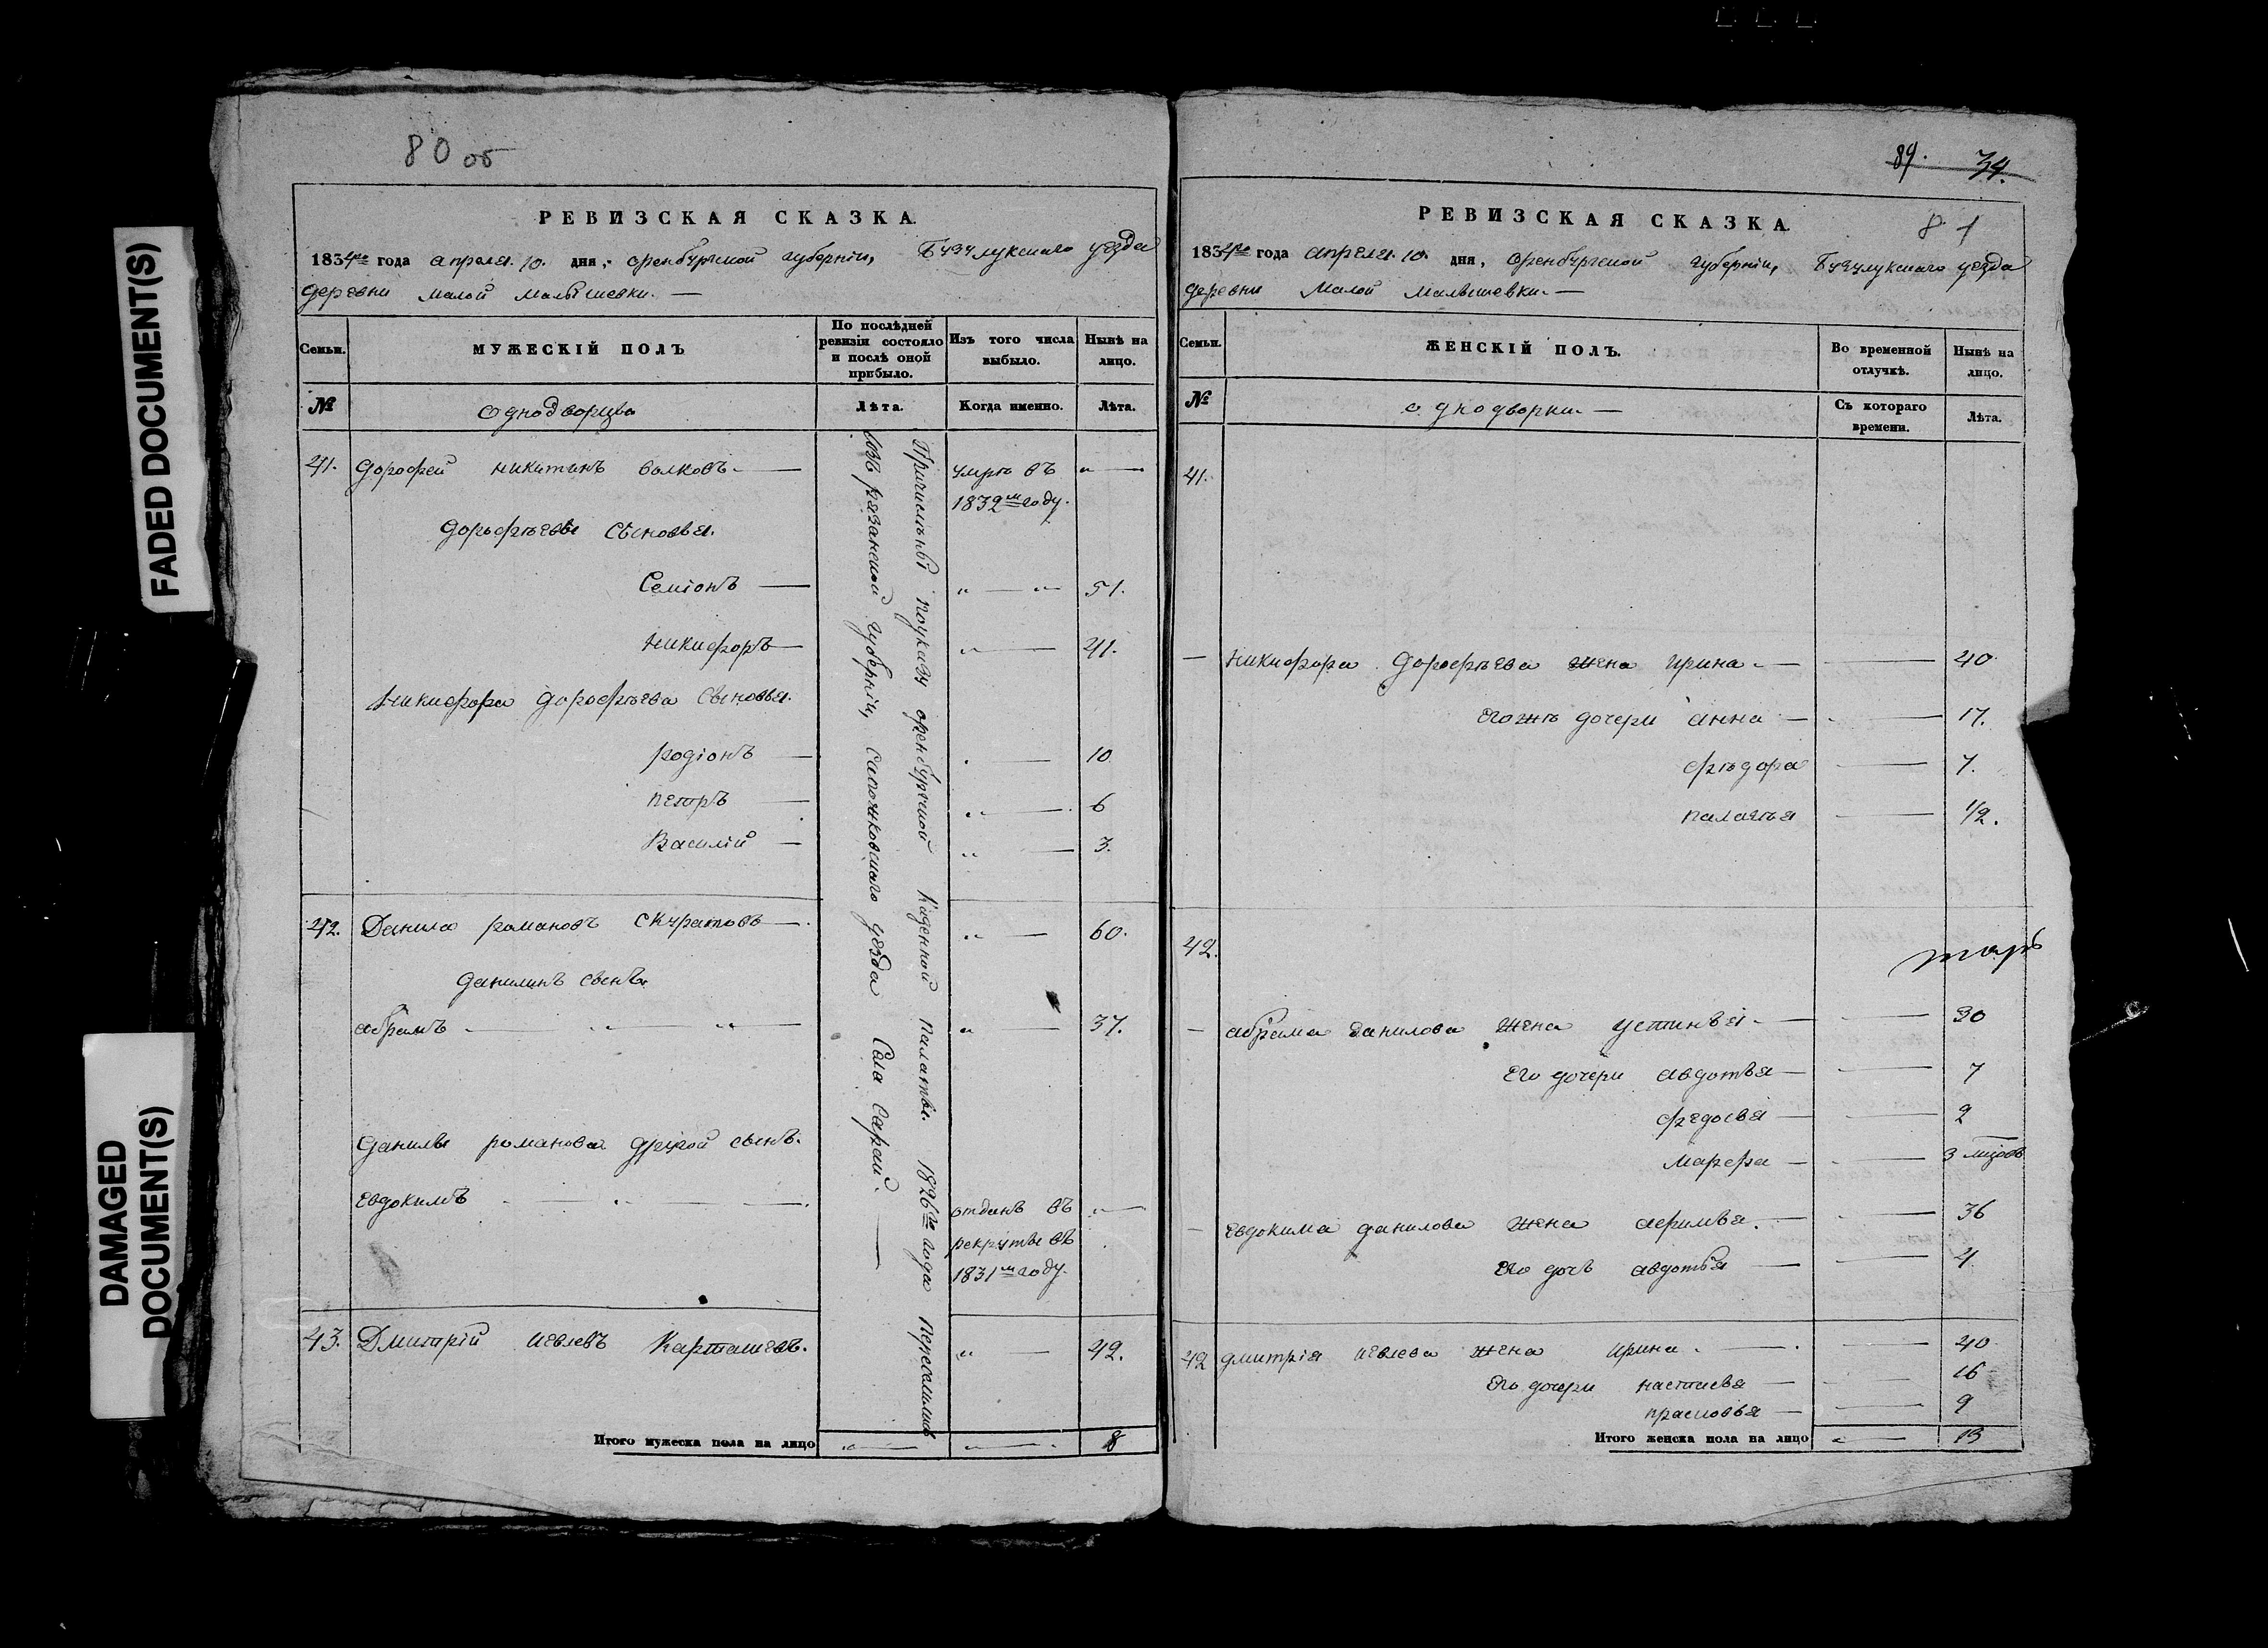 FADED DOCUMENT(S)
DAMAGED DOCUMENT(S)
80 об
РЕВИЗСКАЯ СКАЗКА
1834го года апреля 10. дня, Оренбургской губернiи, Бузулукскаго уезда
деревни Малой Малышевки. —
Семьи. МУЖЕСКIЙ ПОЛЪ По послѣдней ревизiи состояло и послѣ оной прибыло. Изъ того числа выбыло. Нынѣ на лицо.
№ Однодворцы Лѣта. Когда именно. Лѣта.
Причислены поуказу оренбургской казенной палаты. 1826го года переселились
изъ рязанской губернiи, сапожковскаго уезда села сарай. —
41. Дорофей никитинъ волковъ — умрѣ въ 1832м году. " —
дорофѣевы сыновья.
Семiонъ — " — " 51.
никифоръ — " — 41.
никифора дорофѣева сыновья.
родiонъ — " — 10
петръ — " — 6
Василiй — " — 3.
42. Данила романовъ скуратовъ — " — 60.
данилинъ сынъ
абрамъ — " " — " — 37.
данилы романова другой сынъ.
евдокимъ — " — отданъ въ рекруты въ 1831м году. " —
43. Дмитрiй иевлевъ Карташевъ. " — 42.
Итого мужеска пола на лицо " — " — 8
89. 34.
81
РЕВИЗСКАЯ СКАЗКА
1834го года апреля 10. дня, Оренбургской губернiи, Бузулукскаго уезда
деревни Малой Малышевки. —
Семьи. ЖЕНСКIЙ ПОЛЪ. Во временной отлучкѣ. Нынѣ на лицо.
№ однодворки — Съ котораго времени. Лѣта.
41.
— никифора дорофѣева жена ирина — — 40
егожѣ дочери анна — — 17.
фѣдора — 7.
палагѣя — 1/2.
42.
— абрама данилова жена устинья — — 30
его дочери авдотья — — 7
федосья — — 2
марфа — — 3 мѣсяцов
— евдокима данилова жена афимья. — — 36
его дочь авдотья — — 4
42 дмитрiя иевлева жена ирина. — — 40
его дочери настасья — — 16
прасковья — — 9
Итого женска пола на лицо " — 13